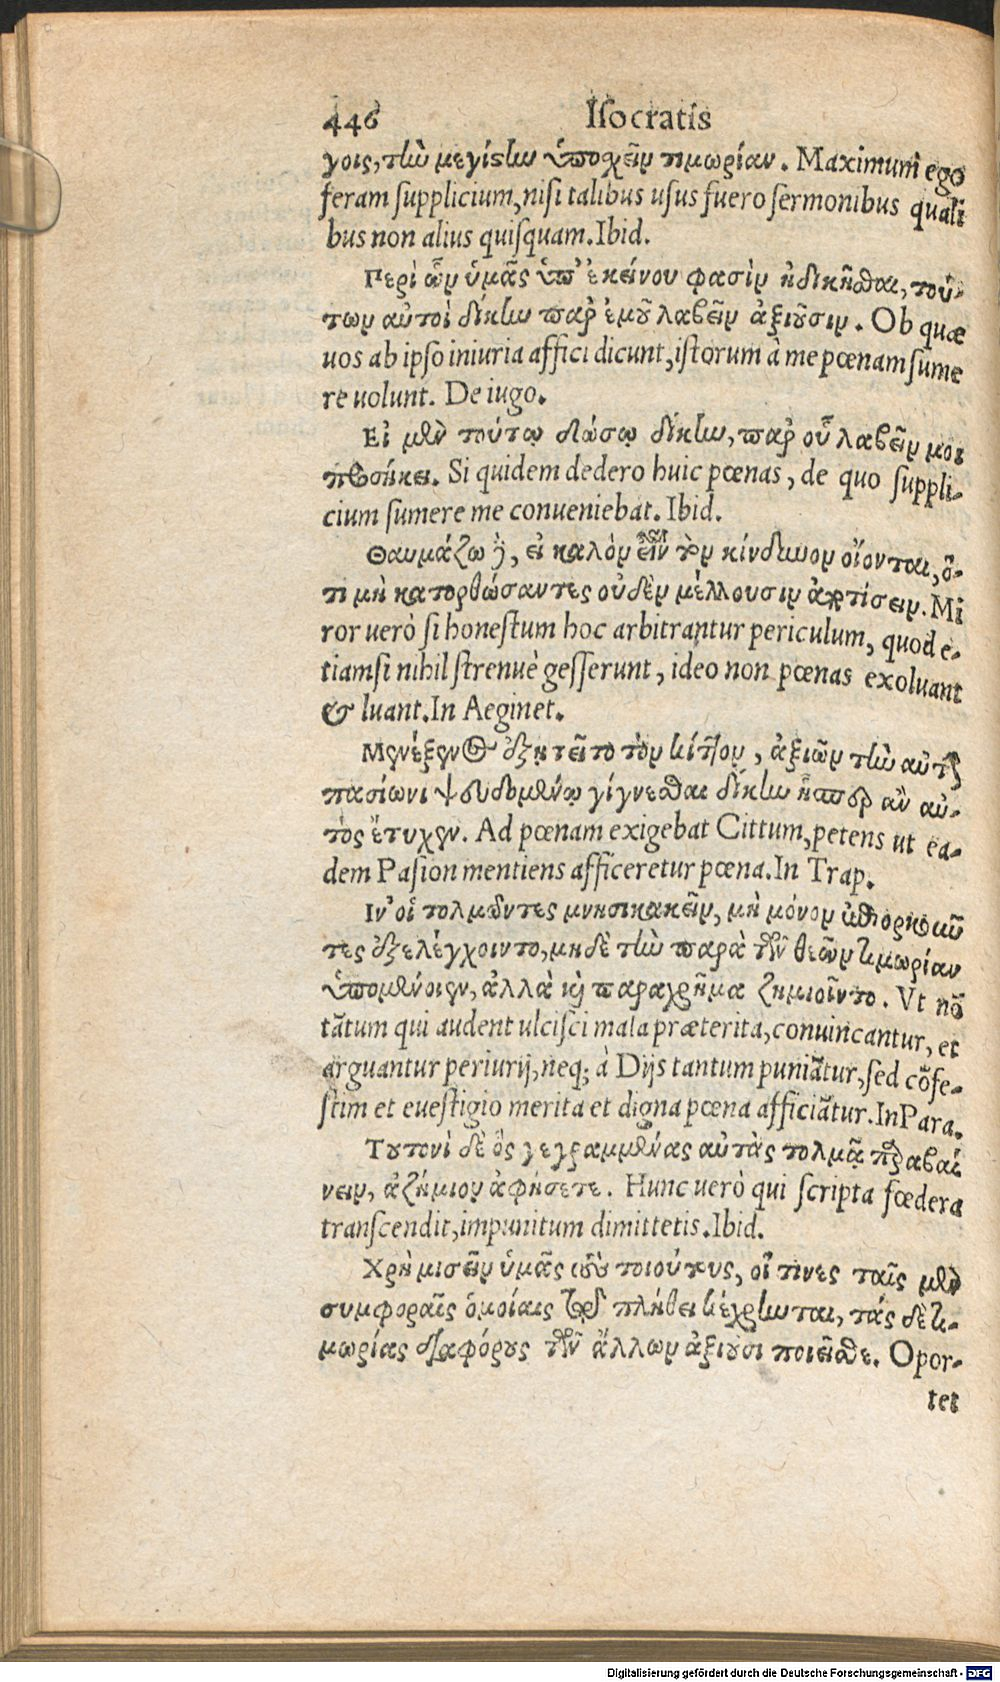 446 Isocratis
γοις, τὴν μεγίστην ὑποσχεῖν τιμωρίαν. Maximum ego
feram supplicium, nisi talibus usus fuero sermonibus quali
bus non alius quisquam. Ibid.
Περὶ ὧν ὑμᾶς ὑπ' ἐκείνου φασὶν ἠδικῆσθαι, τού-
των αὐτοὶ δίκην παρ' ἐμοῦ λαβεῖν ἀξιοῦσιν. Ob quæ
uos ab ipso iniuria affici dicunt, istorum à me pœnam sume
re uolunt. De iugo.
Εἰ μὲν τούτῳ δώσω δίκην, παρ' οὗ λαβεῖν μοι
προσήκει. Si quidem dedero huic pœnas, de quo suppli-
cium sumere me conueniebat. Ibid.
Θαυμάζω δ', εἰ καλὸν εἶναι τὸν κίνδυνον οἴονται, ὅ-
τι μὴ κατορθώσαντες οὐδὲν μέλλουσιν ἀποτίσειν. Mi
ror uerò si honestum hoc arbitrantur periculum, quod e-
tiamsi nihil strenuè gesserunt, ideo non pœnas exoluant
& luant. In Aeginet.
Μενέξενος ἐξῃτεῖτο τὸν κίττον, ἀξιῶν τὴν αὐτὴν
πασίωνι ψευδομένῳ γίγνεσθαι δίκην ἥπερ ἂν αὐ-
τὸς ἔτυχεν. Ad pœnam exigebat Cittum, petens ut ea-
dem Pasion mentiens afficeretur pœna. In Trap.
Ιν' οἱ τολμῶντες μνησικακεῖν, μὴ μόνον ἐπιορκοῦν
τες ἐξελέγχοιντο, μηδὲ τὴν παρὰ τῶν θεῶν τιμωρίαν
ὑπομένοιεν, ἀλλὰ καὶ παραχρῆμα ζημιοῖντο. Vt nō
tātum qui audent ulcisci mala præterita, conuincantur, et
arguantur periurij, neq; à Dijs tantum puniātur, sed cōfe-
stim et euestigio merita et digna pœna afficiātur. In Para.
Τουτονὶ δὲ ὃς γεγραμμένας αὐτὰς τολμᾷ παραβαί
νειν, ἀζήμιον ἀφήσετε. Hunc uerò qui scripta fœdera
transcendit, impunitum dimittetis. Ibid.
Χρὴ μισεῖν ὑμᾶς τοὺς τοιούτους, οἵ τινες ταῖς μὲν
συμφοραῖς ὁμοίαις τῷ πλήθει κέχρηνται, τάς δὲ τι-
μωρίας διαφόρους τῶν ἄλλων ἀξιοῦσι ποιεῖσθε. Opor-
tet
Digitalisierung gefördert durch die Deutsche Forschungsgemeinschaft - DFG